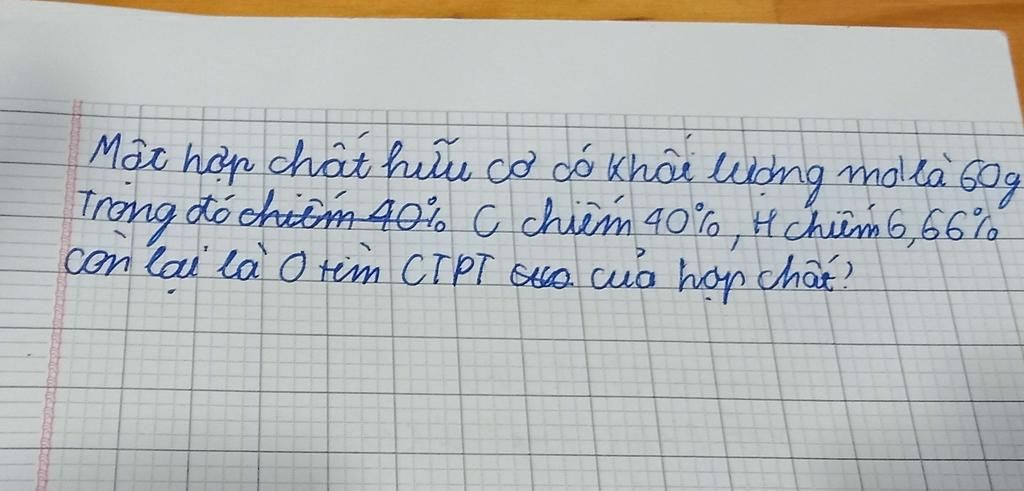 Một hợp chất hữu cơ có khối lượng mol là 60g
Trong đó chiếm 40% C chiếm 40%, H chiếm 6,66%
còn lại là O tìm CTPT của hợp chất?